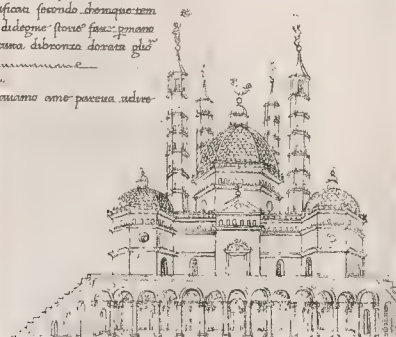 ificati secondo chemque tem
di degne storie fau pmano
tura dibronzo dorata glio
auamo ame pareua udire